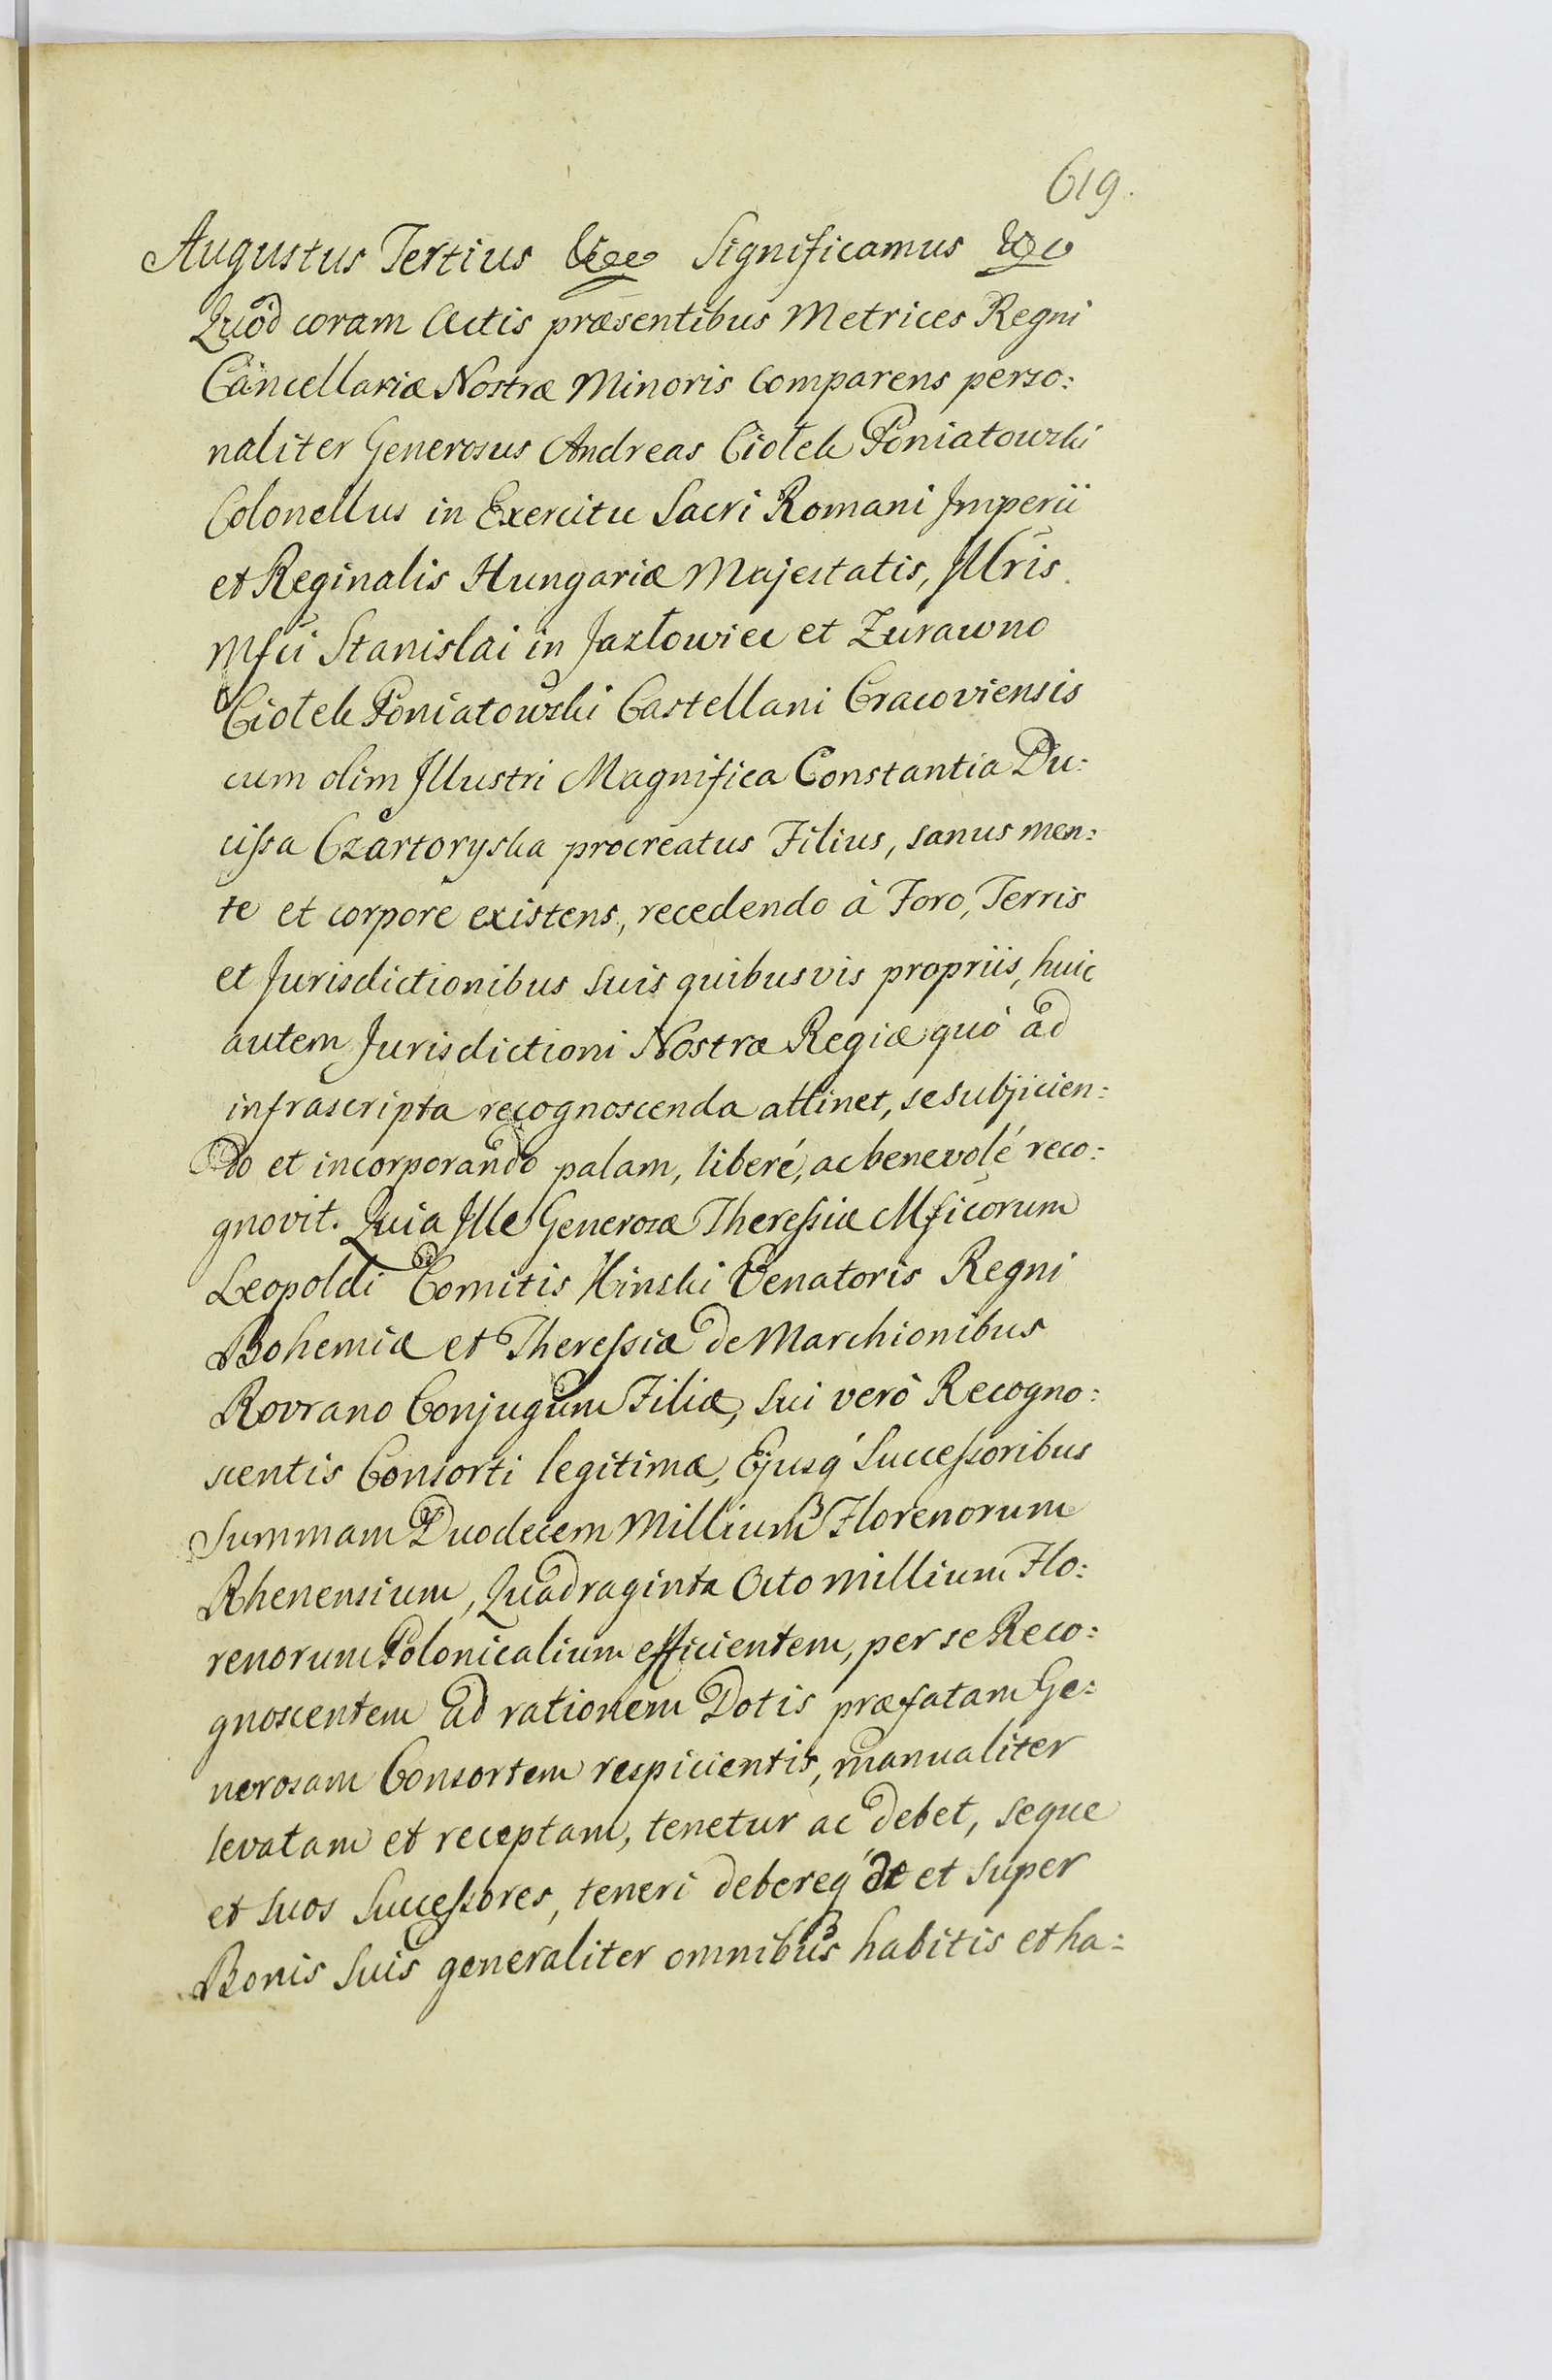 619.
Augustus Tertius &cc Significamus &c
Quod coram Actis præsentibus Metrices Regni
Cancellariæ Nostræ Minoris Comparens perso:
naliter Generosus Andreas Ciołek Poniatowski
Colonellus in Exercitu Sacri Romani Imperii
et Reginalis Hungariæ Majestatis, Illris
Mfci Stanislai in Jazłowiec et Zurawno
Ciołek Poniatowski Castellani Cracoviensis
cum olim Illustri Magnifica Constantia Du:
cissa Czartoryska procreatus Filius, sanus men:
te et corpore existens, recedendo à Foro, Terris
et Jurisdictionibus suis quibusvis propriis, huic
autem Jurisdictioni Nostræ Regiæ quò ad
infrascripta recognoscenda attinet, se subjicien:
do et incorporando palam, liberé, ac benevolé reco:
gnovit. Quia Ille Generosæ Theressiæ Mficorum
Leopoldi Comitis Kinski Venatoris Regni
Bohemiæ et Theressiæ de Marchionibus
Rovrano Conjugum Filiæ, sui verò Recogno:
scentis Consorti legitimæ, Ejusq' Successoribus
Summam Duodecem Millium Florenorum
Rhenensium, Quadraginta Octo millium Flo:
renorum Polonicalium efficientem, per se Reco:
gnoscentem ad rationem Dotis præfatam Ge:
nerosam Consortem respicientis, manualiter
levatam et receptam, tenetur ac debet, seque
et suos Successores, teneri debereq' de et super
Bonis suis generaliter omnibus habitis et ha: